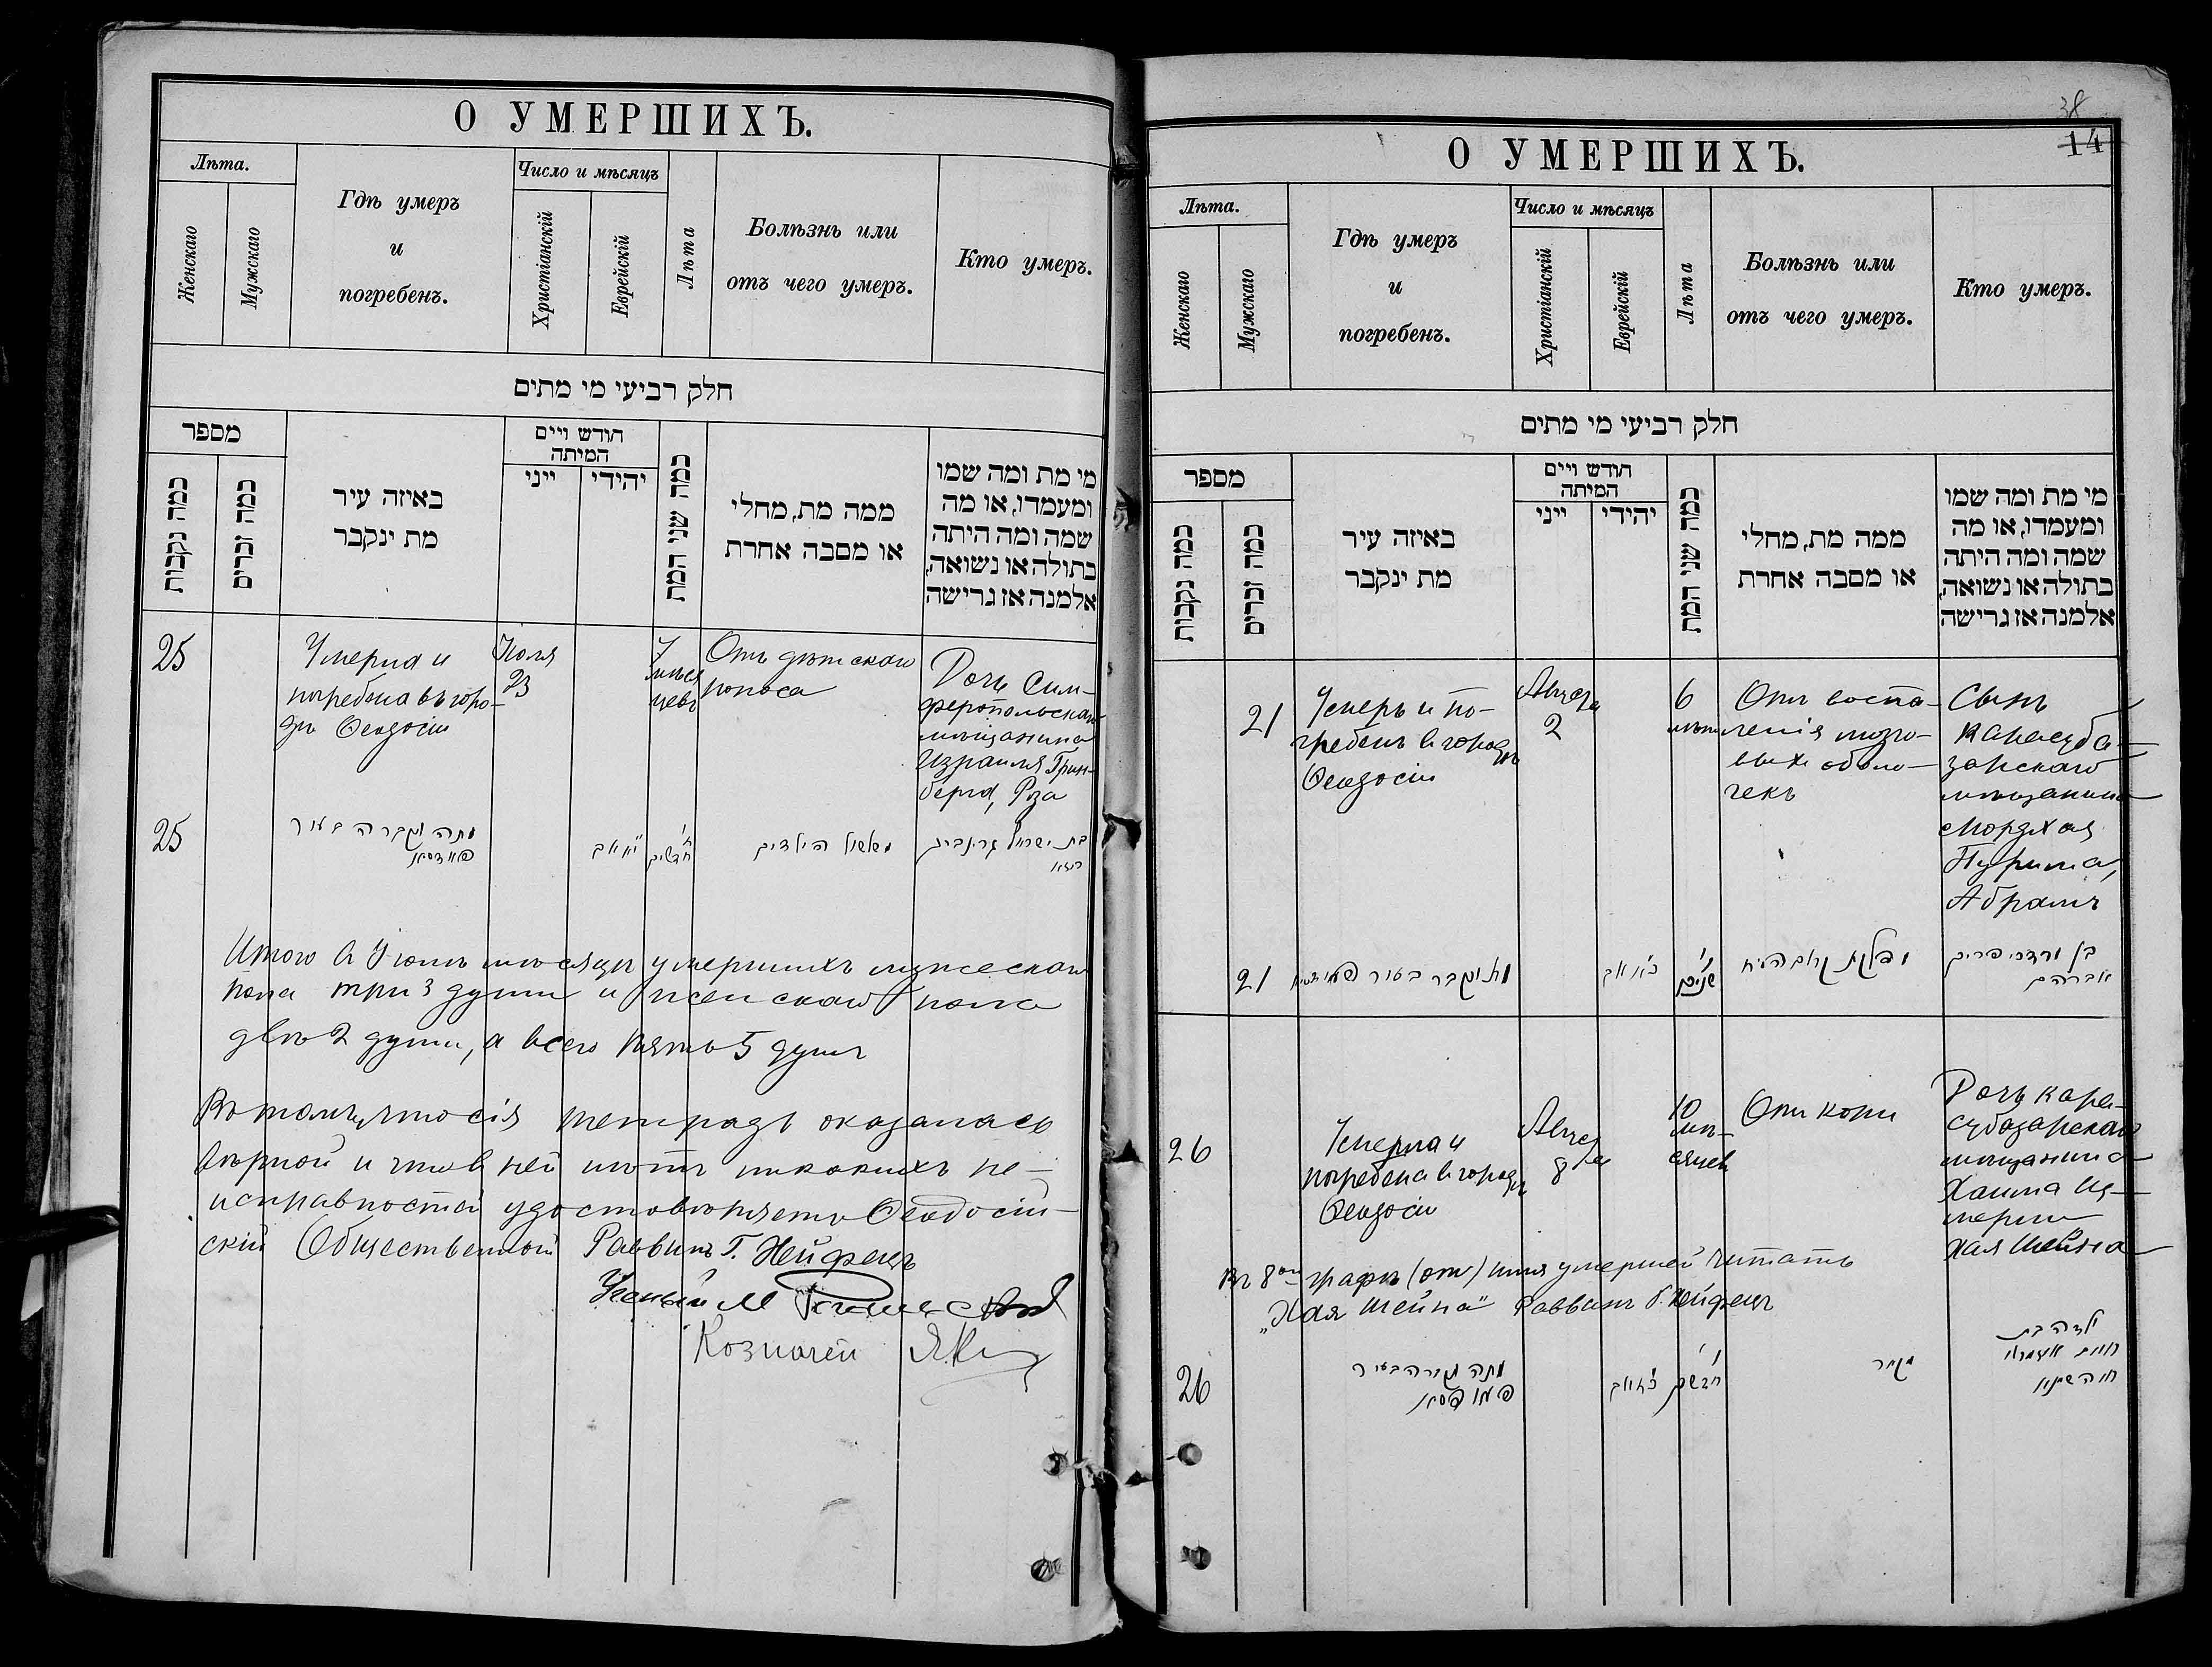 О УМЕРШИХЪ.
Лѣта.
Женскаго
Мужскаго
Гдѣ умеръ
и
погребенъ.
Число и мѣсяцъ
Христіанскій
Еврейскій
Лѣта
Болѣзнь или
отъ чего умеръ.
Кто умеръ.
חלק רביעי מי מתים
מספר
כמה נקבות
כמה זכרים
באיזה עיר
מת ינקבר
חודש ויים
המיתה
ייני
יהידי
כמה שני המת
ממה מת, מחלי
או מסבה אחרת
מי מת ומה שמו
ומעמדו, או מה
שמה ומה היתה
בתולה או נשואה,
אלמנה אז גרישה
25
Умерла и
погребена въ горо-
дѣ Ѳеодосіи
Іюля
23
7
мѣся
цевъ
Отъ дѣтскаго
поноса
Дочь Сим-
феропольскаго
мѣщанина
Израиля Грин-
берга, Роза
25
מתה ונקברה בעיר
חדשים
הילדים
בת ישראל גרינבערג
רוזא
Итого въ Іюлѣ мѣсяцѣ умершихъ мужескаго
пола три 3 души и женскаго пола
двѣ 2 души, а всего пять 5 душъ
Въ томъ, что сія тетрадь оказалась
вѣрной и что въ ней нѣтъ никакихъ не-
исправностей удостовѣряетъ Ѳеодосій-
скій Общественный Раввинъ Г. Нейфецъ
Ученый М
Козначей
38
14
О УМЕРШИХЪ.
Лѣта.
Женскаго
Мужскаго
Гдѣ умеръ
и
погребенъ.
Число и мѣсяцъ
Христіанскій
Еврейскій
Лѣта
Болѣзнь или
отъ чего умеръ.
Кто умеръ.
חלק רביעי מי מתים
מספר
כמה נקבות
כמה זכרים
באיזה עיר
מת ינקבר
חודש ויים
המיתה
ייני
יהידי
כמה שני המת
ממה מת, מחלי
או מסבה אחרת
מי מת ומה שמו
ומעמדו, או מה
שמה ומה היתה
בתולה או נשואה,
אלמנה אז גרישה
21
Умеръ и по-
гребенъ въ городѣ
Ѳеодосіи
Августа
2
6
лѣтъ
Отъ воспа-
ленія мозго-
выхъ оболо-
чекъ
Сынъ
Карасуба-
зарскаго
мѣщанина
Мордхая
Пурима,
Абрамъ
21
מת ונקבר בעיר
אב
בן מרדכי פורים
אברהם
26
Умерла и
погребена въ городѣ
Ѳеодосіи
Августа
8
10
мѣ-
сяцевъ
Отъ кори
Дочь Кара-
субазарскаго
мѣщанина
Хаима Из-
мерли
Хая Шейна
Въ 8ой графѣ (от) имя умершей читать
„Хая Шейна" Раввинъ Г. Нейфецъ
26
ילדה בת
חיה שיינא